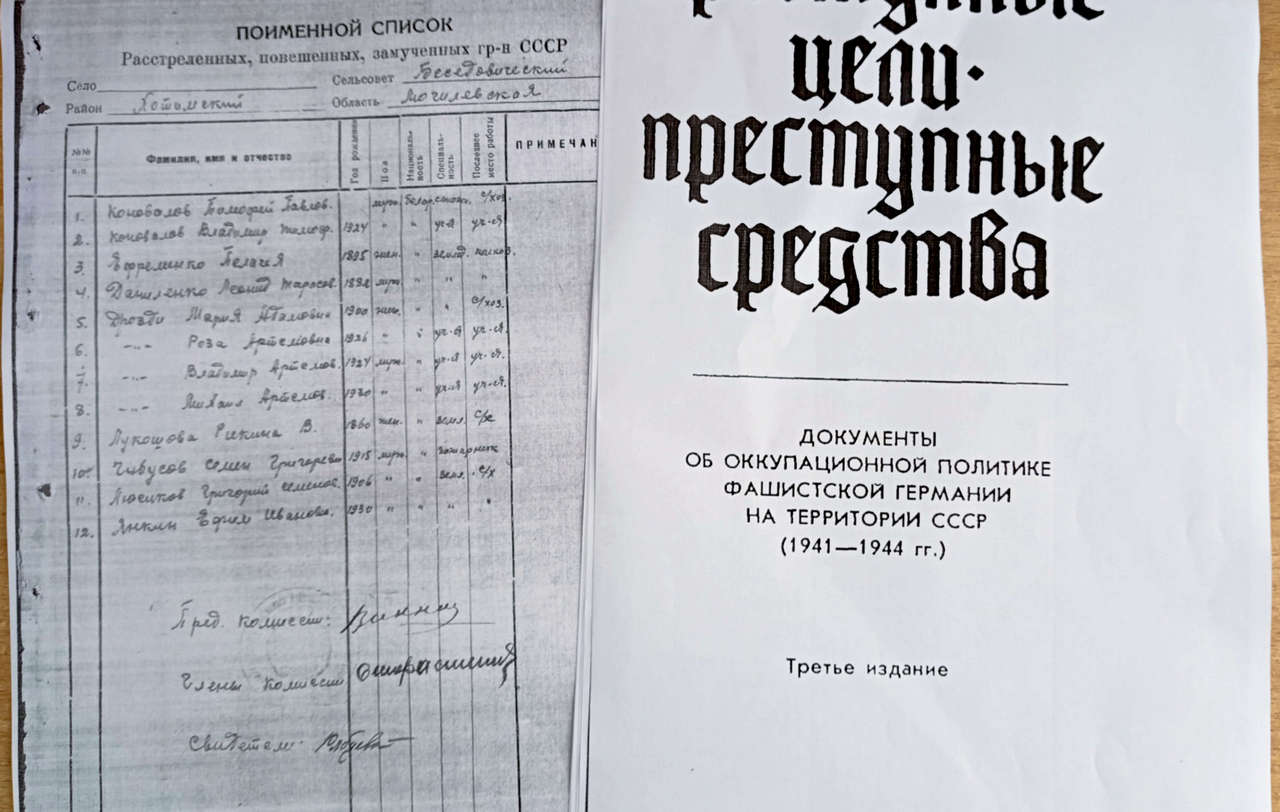 ПОИМЕННОЙ СПИСОК
Расстреленных, повешенных, замученных гр-н СССР
Село
Сельсовет Беседовический
Район Хотимский
Область Могилевская
№№ п.п.
Фамилия, имя и отчество
Год рождения
Пол
Националь-ность
Специаль-ность
Последнее место работы
ПРИМЕЧАН
1. Коновалов Тимофей Павлов. муж. белор. с/хоз.
2. Коновалов Владимир Тимоф. 1924 " " уч-я уч-ся
3. Ефременко Пелагия 1895 жен. " землд. колхоз.
4. Даниленко Леонид Тарасов. муж. " " "
5. Дрозды Мария Адамовна 1900 жен. " " с/хоз.
6. -"- Роза Артемовна 1926 " " уч-я уч-ся.
7. -"- Владимир Артемов. 1924 муж. " уч-я уч-ся.
8. -"- Михаил Артемов. 1930 " " уч-я уч-ся.
9. Лукошова В. 1860 жен. " земл. с/хе
10. Чивусов Семен Григорьев 1915 муж. "
11. Григорий Семенов. 1906 " " земл. с/х
12. Янкин Ефим Иванович. 1930 " " " "
Пред. комиссии:
Члены комиссии
Свидетели:
цели-
преступные
средства
ДОКУМЕНТЫ
ОБ ОККУПАЦИОННОЙ ПОЛИТИКЕ
ФАШИСТСКОЙ ГЕРМАНИИ
НА ТЕРРИТОРИИ СССР
(1941—1944 гг.)
Третье издание